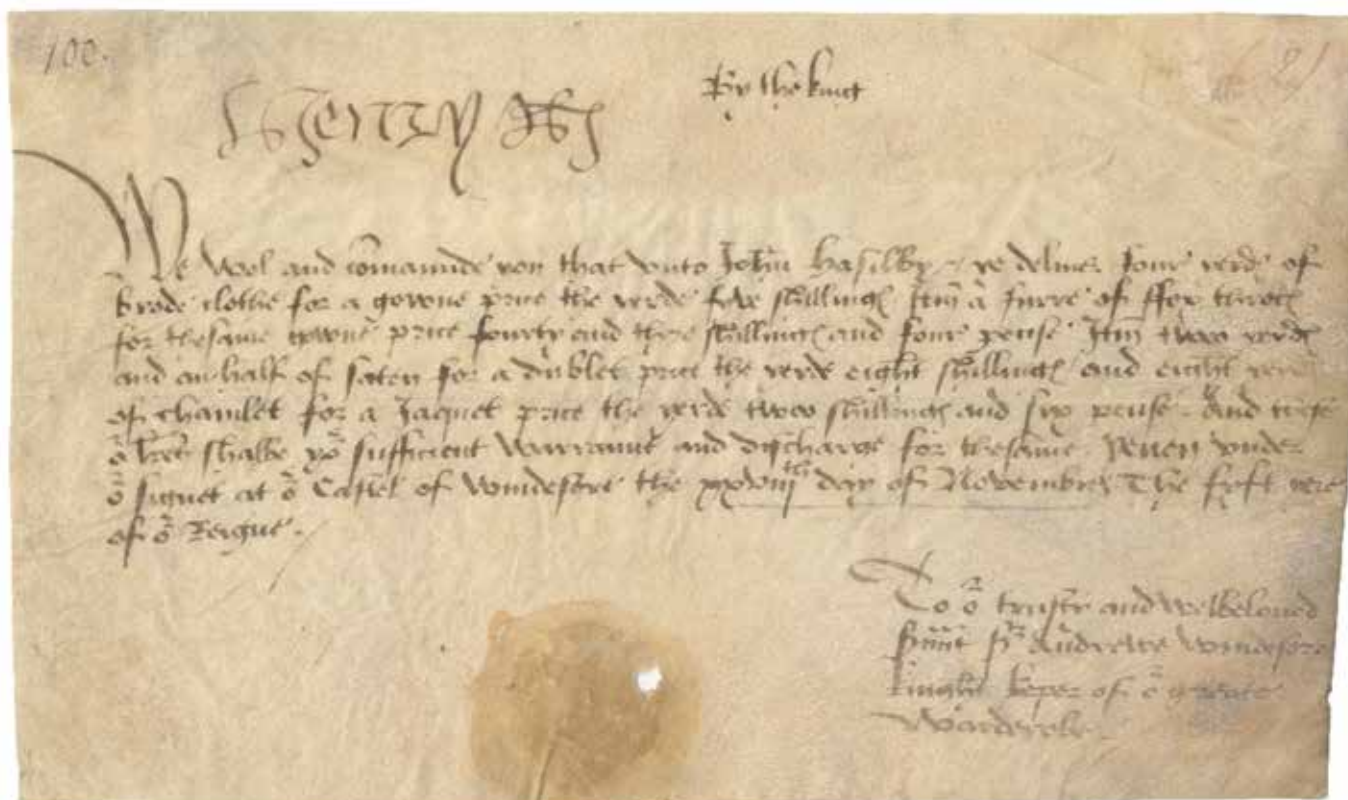 100.
By the king
Henry R
We wol and comaunde you that vnto John Hasilby ye deliuer four yerds of
brode clothe for a gowne price the yerde five shillings Itm a furre of ffox
for thesame gowne price fourty and thre shillings and four pense Itm twoo yerds
and an half of saten for a dublet price the yerde eight shillings and eight yerds
of chamlet for a Jaquet price the yerde twoo shillings and six pense And thise
or lres shalbe yor sufficient warraunt and discharge for thesame yeuen vnder
or signet at or Castel of wyndesore the xxviijth day of Novembre The fyft yere
of or Reigne.
To or trusty and welbeloued
srunt Sr Andrewe wyndesore
knight keper of or greate
Warderobe